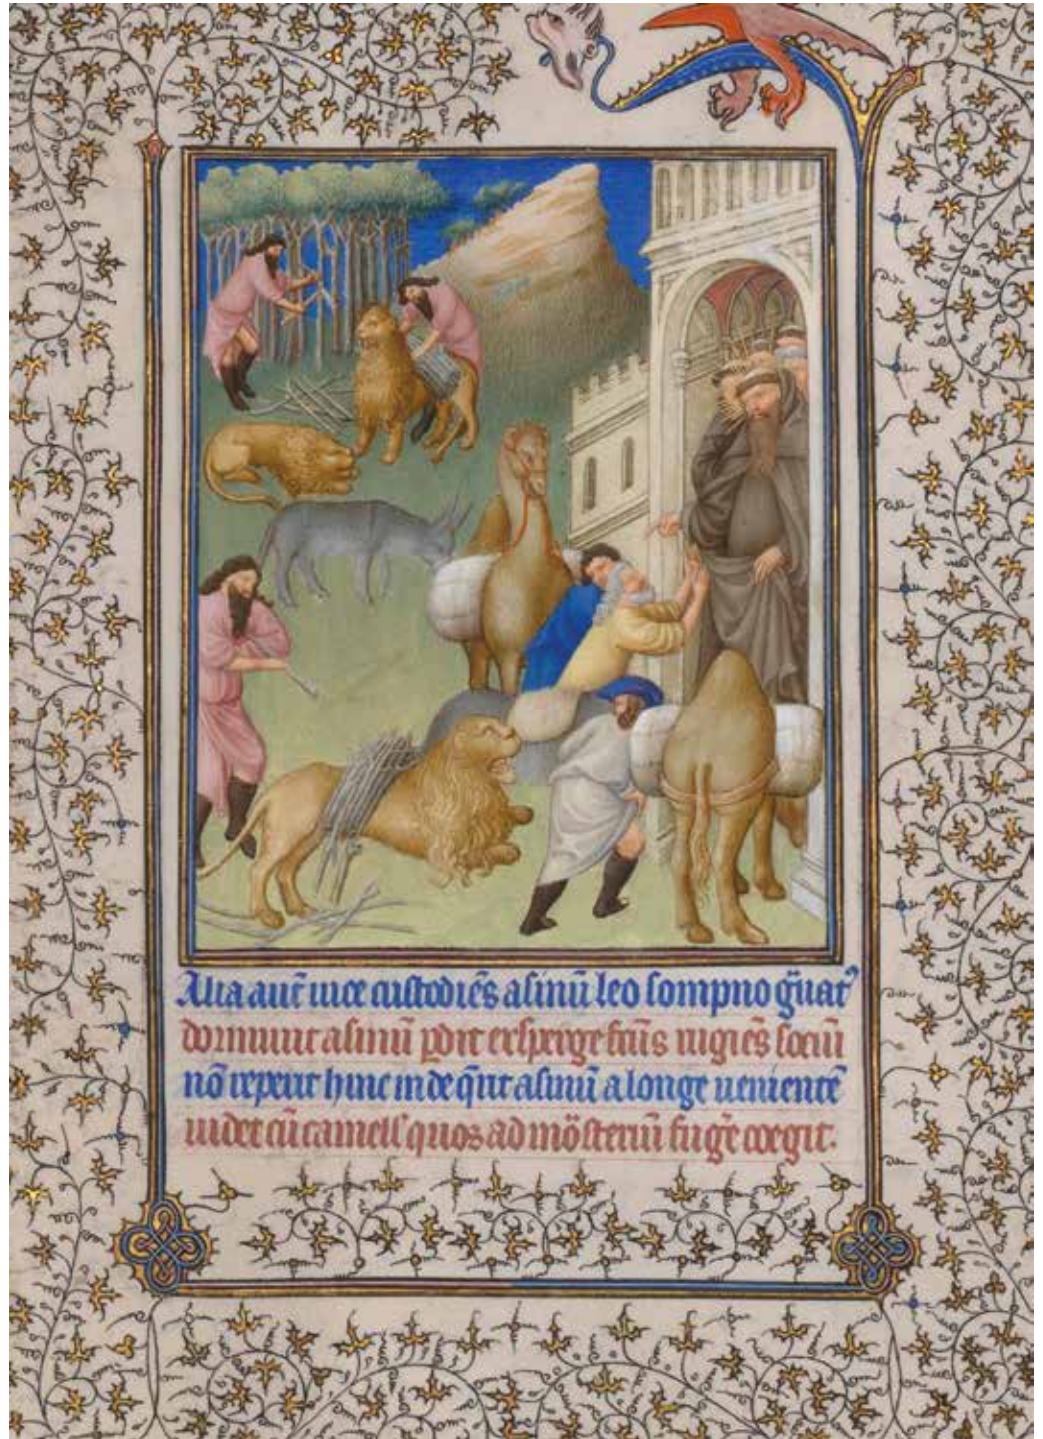 Alia aūt uice custodiēs asinū leo sompno g̃uat᷒
dormiuit asinū ꝑdit exꝑgefcūs rugiēs sociū
nō reperit hinc inde q̃rit asinū a longe uenientē
uidet cū camell' quos ad mōsteriū fug̃e coegit.